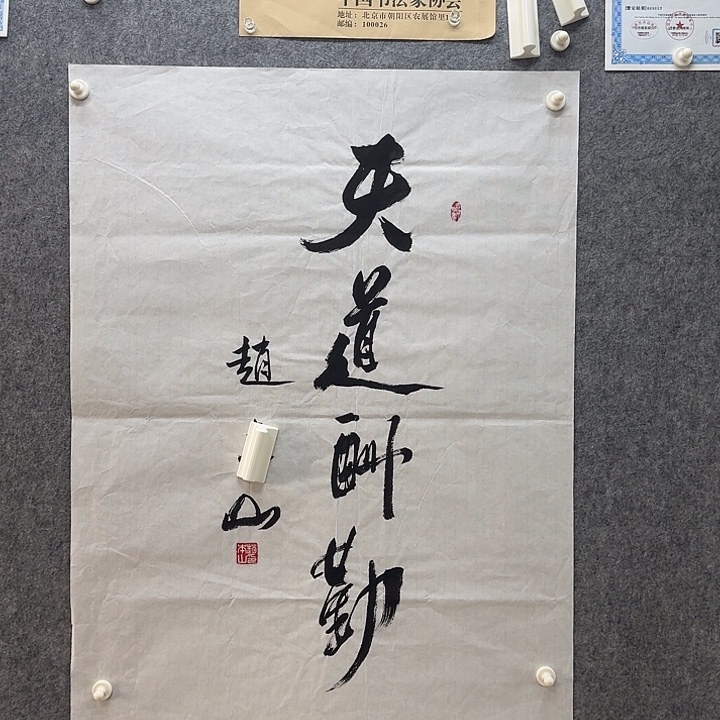 中国书法家协会
地址：北京市朝阳区农展馆里
邮编：100026
天道酬勤
趙
山